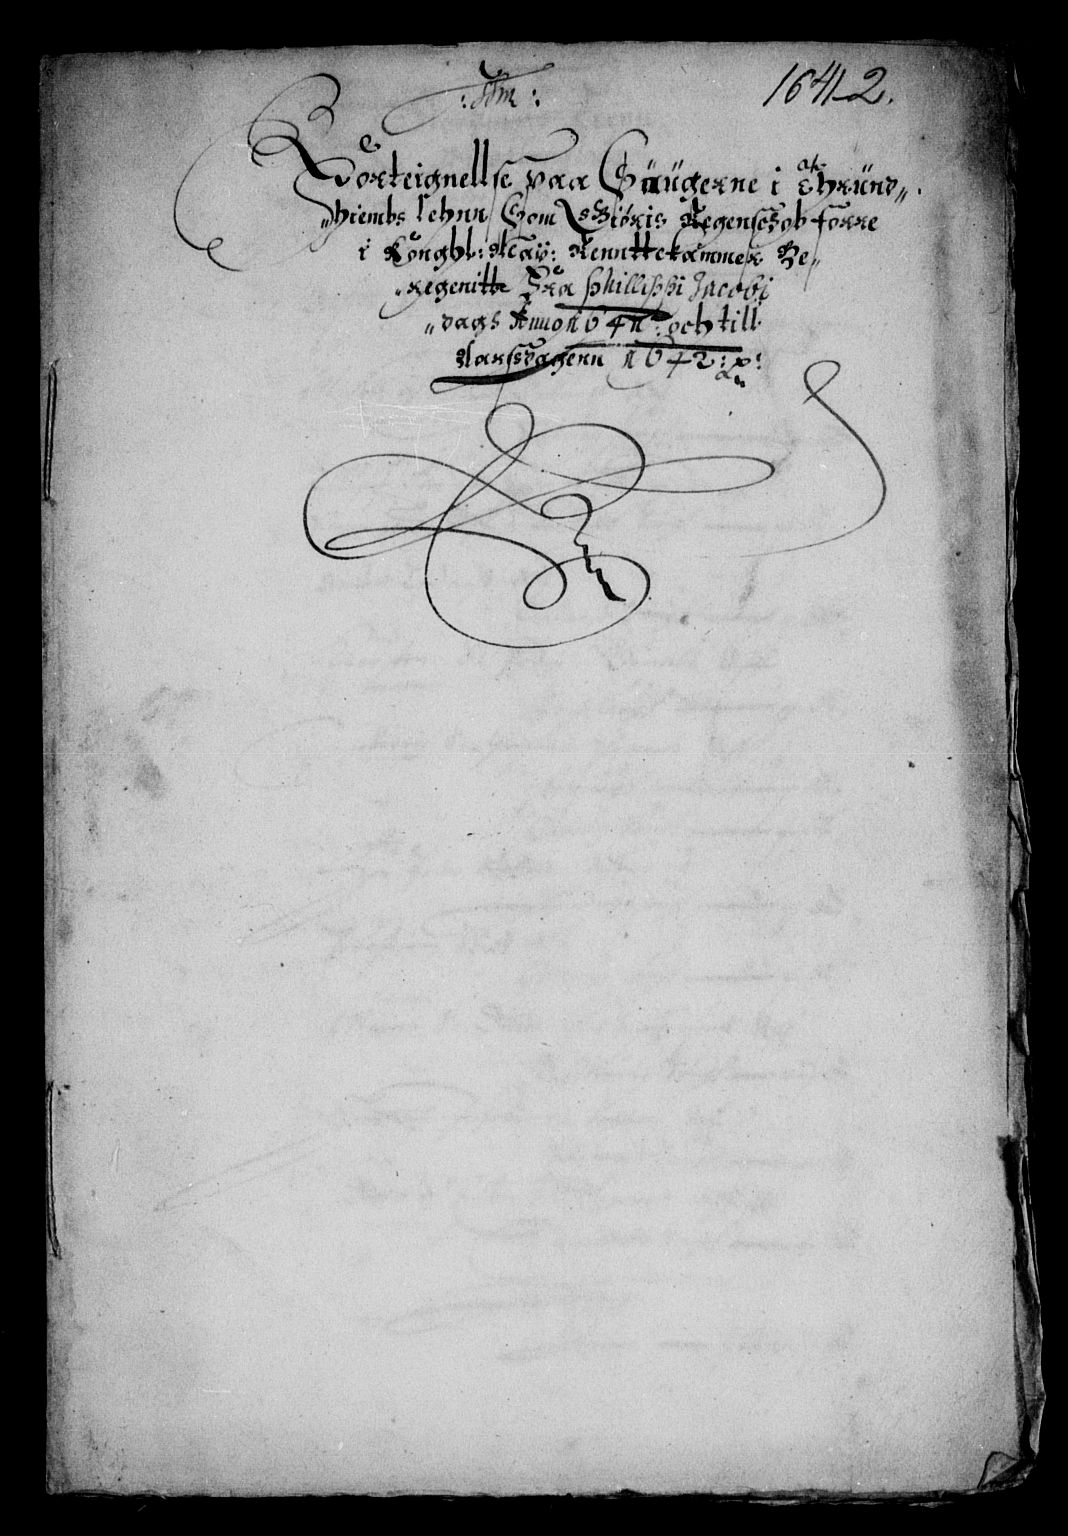 1641-2.
Forteignellse paa Saugerne i Thrund„
„hiembs lehnn Som Giöris Regenschob forre
i Konghl: May: Rennttekammer Be„
„regenitte Fra phillippi Jacobi
„dags Anno 1641: och till
Aarsdagenn 1642: p: